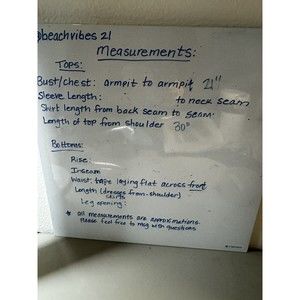 @beachvibes 21
Measurements:
Tops:
Bust/Chest: armpit to armpit 21"
Sleeve Length: to neck seam
Shirt length from back seam to seam:
Length of top from shoulder 30"
Bottoms:
Rise:
Inseam
Waist: tape laying flat across front
Length (dresses from shoulder)
skirts
Leg opening:
* all measurements are approximations.
Please feel free to msg with questions